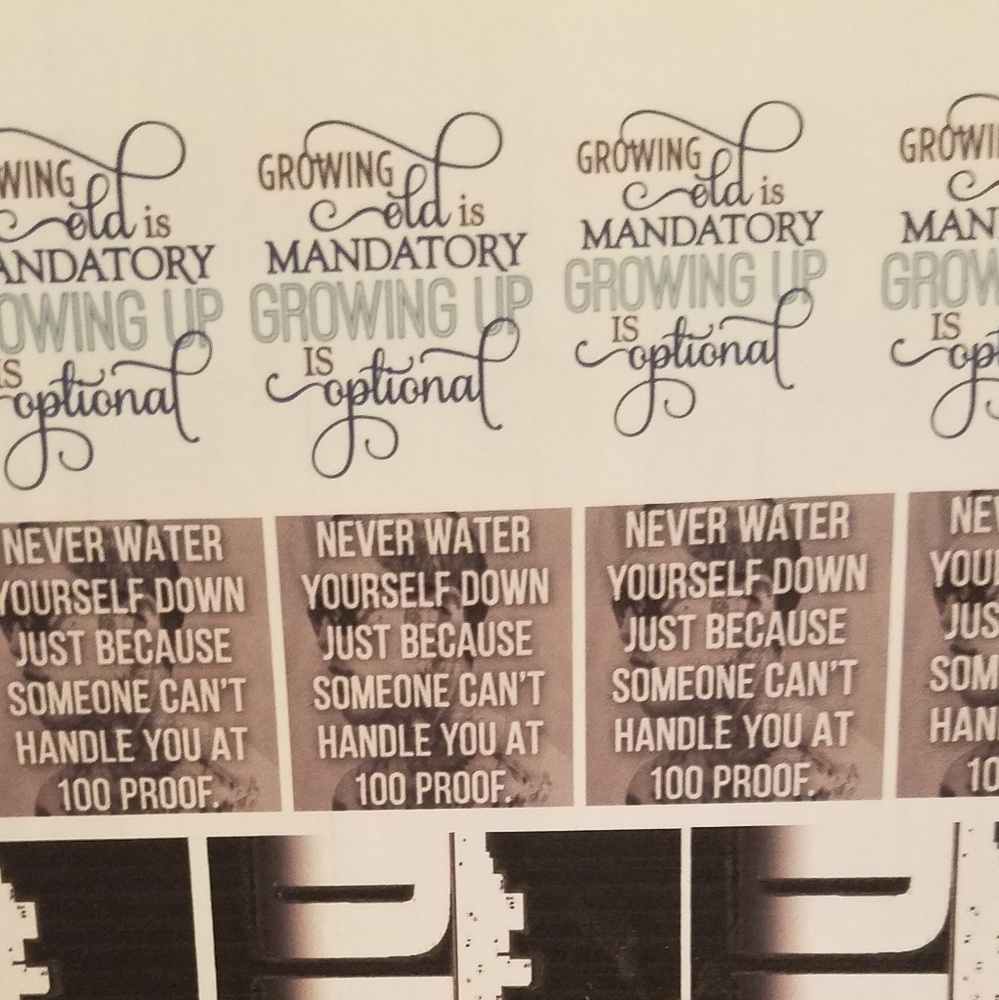 WING
old is
ANDATORY
OWING UP
IS
optional
GROWING
old is
MANDATORY
GROWING UP
IS
optional
GROWING
old is
MANDATORY
GROWING UP
IS
optional
GROWI
MAN
GROW
IS
op
NEVER WATER
YOURSELF DOWN
JUST BECAUSE
SOMEONE CAN'T
HANDLE YOU AT
100 PROOF.
NEVER WATER
YOURSELF DOWN
JUST BECAUSE
SOMEONE CAN'T
HANDLE YOU AT
100 PROOF.
NEVER WATER
YOURSELF DOWN
JUST BECAUSE
SOMEONE CAN'T
HANDLE YOU AT
100 PROOF.
NE
YOU
JUS
SOM
HAN
10